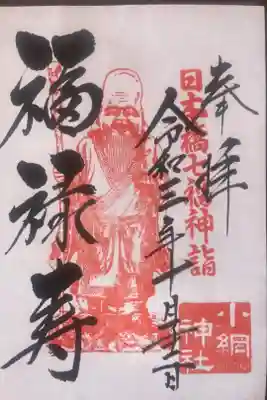 奉拝
日本橋七福神詣
小網
神社
令和三年十月日
福禄寿